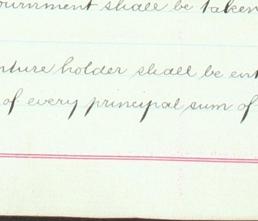 ournment shall be taken
nture holder shall be ent
of every principal sum of